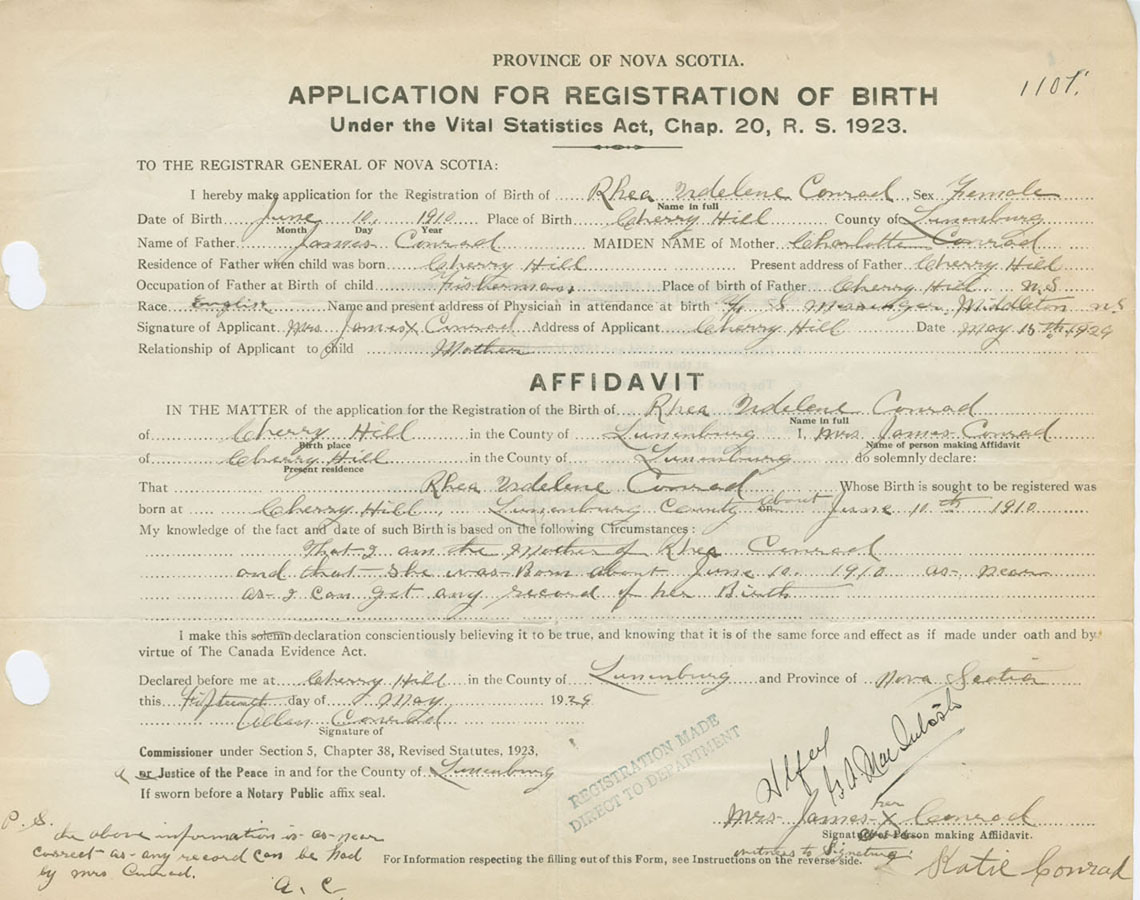 PROVINCE OF NOVA SCOTIA.
1107.
APPLICATION FOR REGISTRATION OF BIRTH
Under the Vital Statistics Act, Chap. 20, R. S. 1923.
TO THE REGISTRAR GENERAL OF NOVA SCOTIA:
I hereby make application for the Registration of Birth of Rhea Udelene Conrad Sex Female
Name in full
Date of Birth June 10 1910 Place of Birth Cherry Hill County of Lunenburg
Month Day Year
Name of Father James Conrad MAIDEN NAME of Mother Charlotte Conrad
Residence of Father when child was born Cherry Hill Present address of Father Cherry Hill
Occupation of Father at Birth of child Fisherman Place of birth of Father Cherry Hill N.S
Race English Name and present address of Physician in attendance at birth S Messinger, Middleton N.S
Signature of Applicant Mrs James X Conrad Address of Applicant Cherry Hill Date May 15th 1929
Relationship of Applicant to child Mother
AFFIDAVIT
IN THE MATTER of the application for the Registration of the Birth of Rhea Udelene Conrad
Name in full
of Cherry Hill in the County of Lunenburg I, Mrs James Conrad
Birth place Name of person making Affidavit
of Cherry Hill in the County of Lunenburg do solemnly declare:
Present residence
That Rhea Udelene Conrad Whose Birth is sought to be registered was
born at Cherry Hill, Lunenburg County on about June 10th 1910
My knowledge of the fact and date of such Birth is based on the following Circumstances:
That I am the Mother of Rhea Conrad
and that she was Born about June 10. 1910 as near
as I can get any record of her Birth
I make this solemn declaration conscientiously believing it to be true, and knowing that it is of the same force and effect as if made under oath and by
virtue of The Canada Evidence Act.
Declared before me at Cherry Hill in the County of Lunenburg and Province of Nova Scotia
this fifteenth day of May 1929
Allan Conrad
Signature of
Commissioner under Section 5, Chapter 38, Revised Statutes, 1923,
a or Justice of the Peace in and for the County of Lunenburg
If sworn before a Notary Public affix seal.
REGISTRATION MADE
DIRECT TO DEPARTMENT
MacIntosh
her
Mrs. James X Conrad
Signature of Person making Affidavit.
witness to Signature
Katie Conrad
P. S.
the above information is as near
correct as any record can be had
by Mrs Conrad.
A. C.
For Information respecting the filling out of this Form, see Instructions on the reverse side.